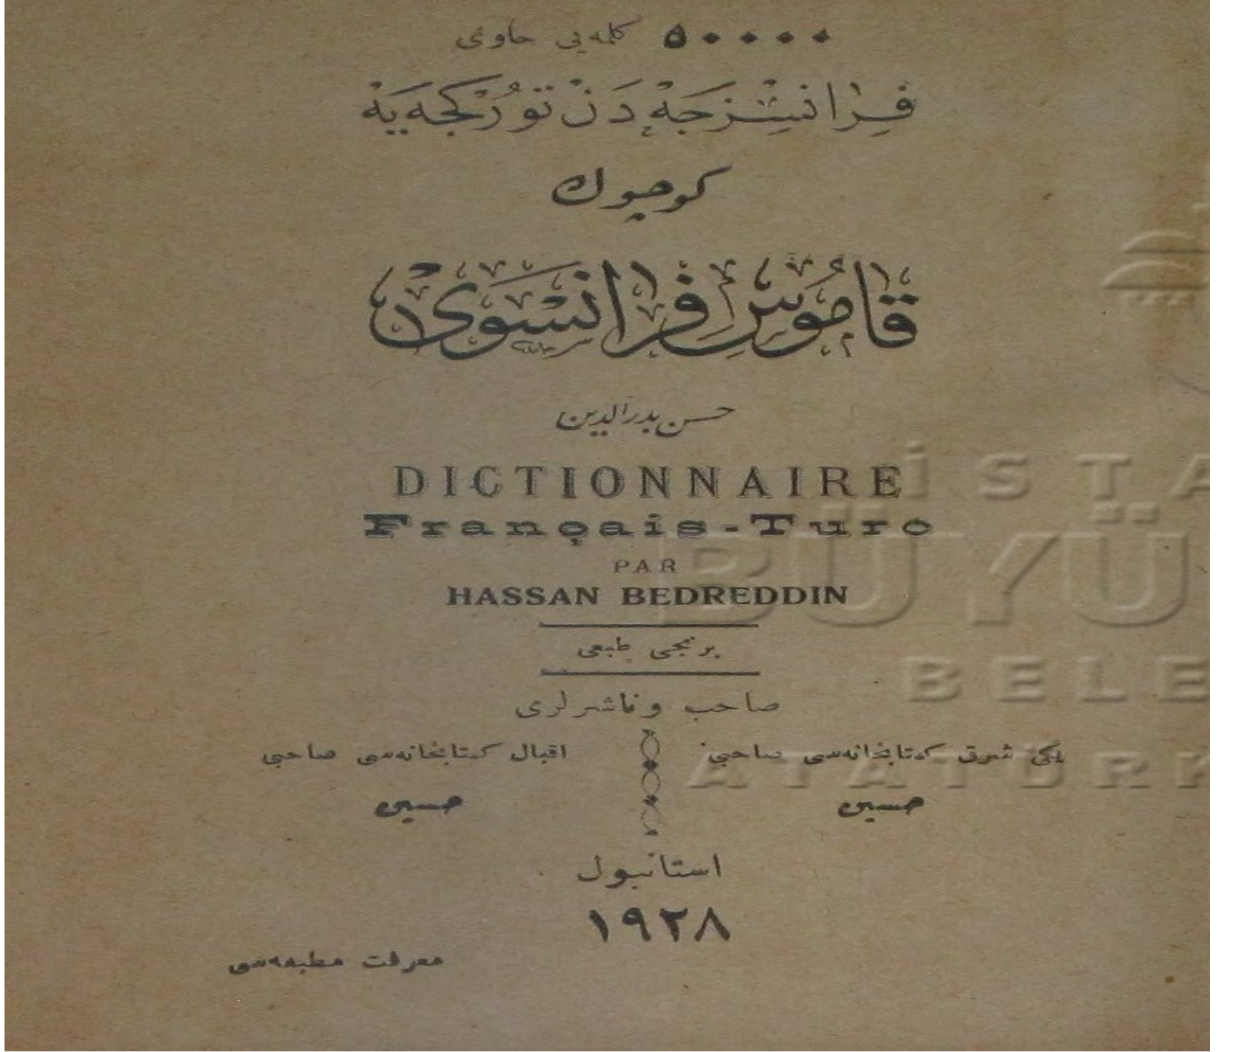 ٥٠٠٠٠ كلمه‌يى حاوى
فرانسزجه‌دن توركجه‌يه
كوچوك
قاموس فرانسوى
حسن بدرالدين
DICTIONNAIRE
Français-Turc
PAR
HASSAN BEDREDDIN
برنجى طبعى
صاحب و ناشرلرى
يكى شرق كتابخانه‌سى صاحبى
حسين
اقبال كتابخانه‌سى صاحبى
حسين
استانبول
١٩٢٨
معرفت مطبعه‌سى
İSTA
BÜYÜ
BELE
ATATÜRK